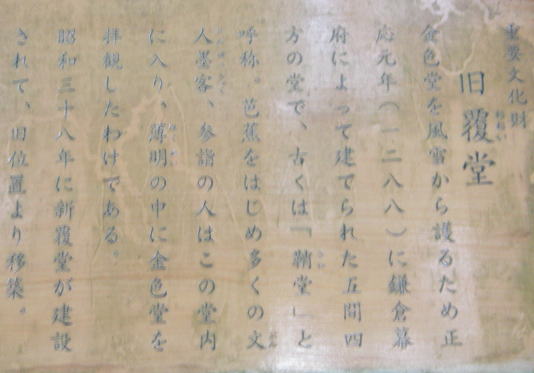 重要文化財
旧覆堂
金色堂を風雪から護るため正
応元年(一二八八)に鎌倉幕
府によって建てられた五間四
方の堂で、古くは「鞘堂」と
呼称。芭蕉をはじめ多くの文
人墨客、参詣の人はこの堂内
に入り、薄明の中に金色堂を
拝観したわけである。
昭和三十八年に新覆堂が建設
されて、旧位置より移築。